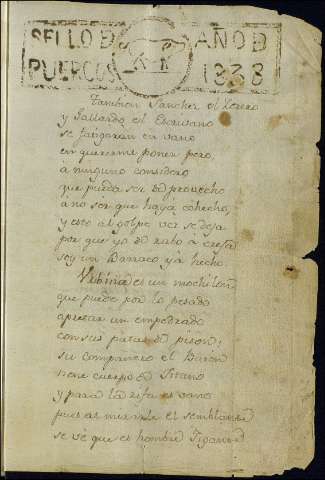 SELLO D AÑO D
PUERCOS 1838
Tambien Sanchez el Zerero
y Gallardo el Escrivano
se fatigaran en vano
en quererme poner pero,
á ninguno considero
que pueda ser de provecho
á no ser que haya cohecho,
y esto al golpe vez se deja
por que yo de rabo á oreja
soy un Barraco ya hecho
Urbina es un mochilon
que puede por lo pesado
apretar un empedrado
con sus patas de pison;
su compañero el Baron
tiene cuerpo de Gitano
y para la rifa es vano
pues al mirarle el semblante
se vé que es hombre